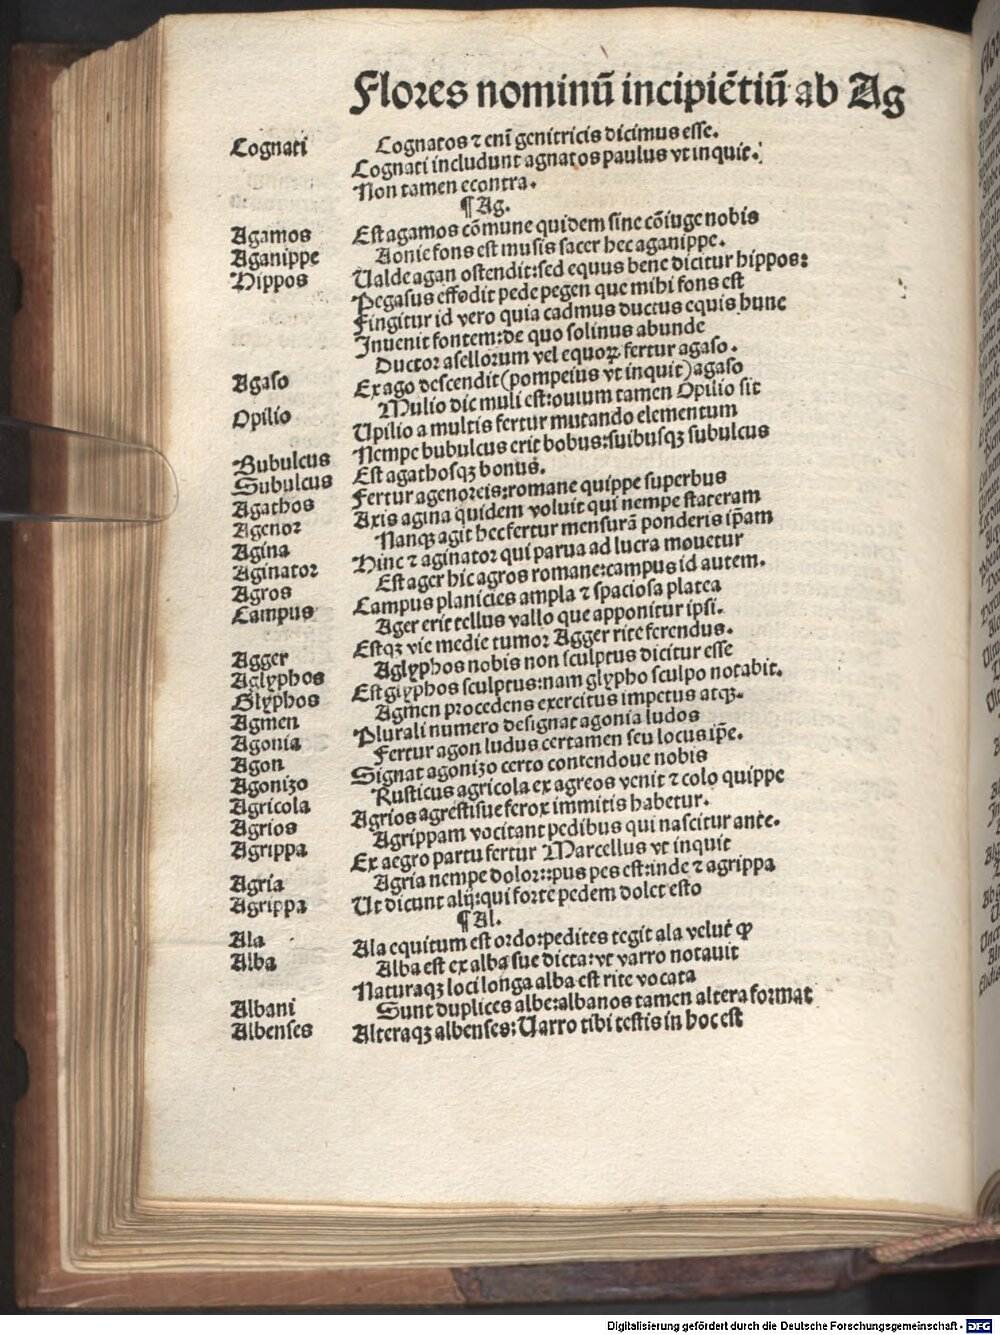 Flores nominū incipiētiū ab Ag
Cognati Cognatos ⁊ enī genitricis dicimus esse.
Cognati includunt agnatos paulus vt inquit.
Non tamen econtra.
¶ Ag.
Agamos Est agamos cōmune quidem sine cōiuge nobis
Aganippe Aonie fons est musis sacer hec aganippe.
Hippos Ualde agan ostendit: sed equus bene dicitur hippos:
Pegasus effodit pede pegen que mihi fons est
Fingitur id vero quia cadmus ductus equis hunc
Inuenit fontem: de quo solinus abunde
Agaso Ductor asellorum vel equoꝝ fertur agaso.
Ex ago descendit (pompeius vt inquit) agaso
Opilio Mulio dic muli est: ouium tamen Opilio sit
Upilio a multis fertur mutando elementum
Bubulcus Nempe bubulcus erit bobus: suibusqꝫ subulcus
Subulcus
Agathos Est agathosqꝫ bonus.
Agenor Fertur agenoreis: romane quippe superbus
Agina Axis agina quidem voluit qui nempe stateram
Nanqꝫ agit hec fertur mensurā ponderis ip̄am
Aginator Hinc ⁊ aginator qui parua ad lucra mouetur
Agros Est ager hic agros romane: campus id autem.
Campus Campus planicies ampla ⁊ spaciosa platea
Ager erit tellus vallo que apponitur ipsi.
Agger Estqꝫ vie medie tumor Agger rite ferendus.
Aglyphos Aglyphos nobis non sculptus dicitur esse
Glyphos Est glyphos sculptus: nam glypho sculpo notabit.
Agmen Agmen procedens exercitus impetus atqꝫ.
Agonia Plurali numero designat agonia ludos
Agon Fertur agon ludus certamen seu locus ip̄e.
Agonizo Signat agonizo certo contendoue nobis
Agricola Rusticus agricola ex agreos venit ⁊ colo quippe
Agrios Agrios agrestisue ferox immitis habetur.
Agrippa Agrippam vocitant pedibus qui nascitur ante.
Ex aegro partu fertur Marcellus vt inquit
Agria Agria nempe dolor: pus pes est: inde ⁊ agrippa
Agrippa Ut dicunt alij: qui forte pedem dolet esto
¶ Al.
Ala Ala equitum est ordo: pedites tegit ala velut ꝙ
Alba Alba est ex alba sue dicta: vt varro notauit
Naturaqꝫ loci longa alba est rite vocata
Albani Sunt duplices albe: albanos tamen altera format
Albenses Alteraqꝫ albenses: Uarro tibi testis in hoc est
Digitalisierung gefördert durch die Deutsche Forschungsgemeinschaft - DFG